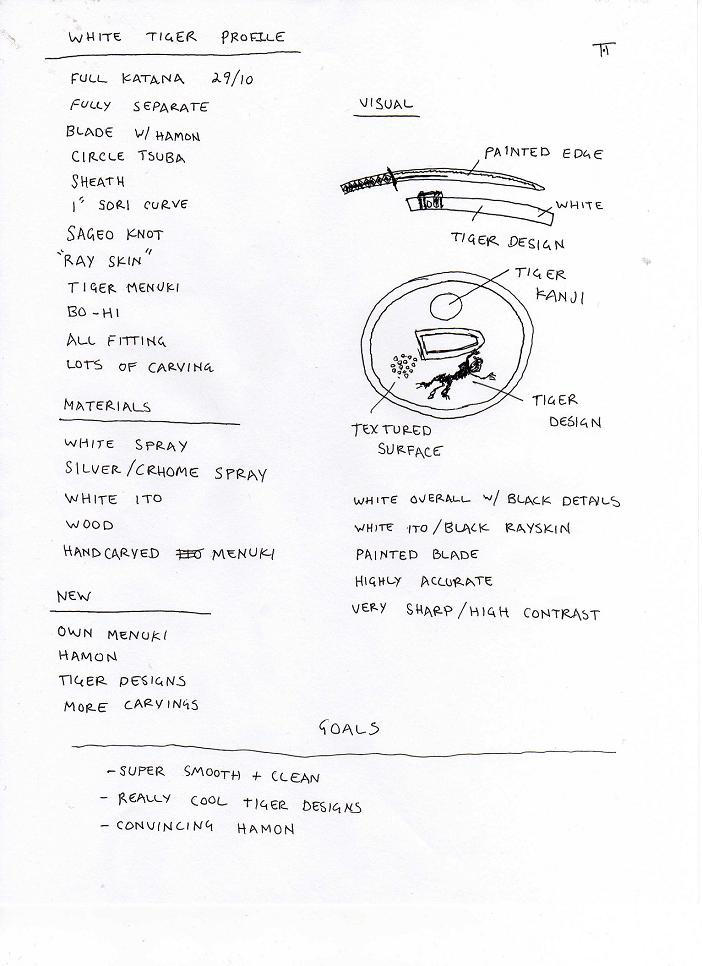 WHITE TIGER PROFILE
FULL KATANA 29/10
FULLY SEPARATE
BLADE W/ HAMON
CIRCLE TSUBA
SHEATH
1" SORI CURVE
SAGEO KNOT
"RAY SKIN"
TIGER MENUKI
BO-HI
ALL FITTING
LOTS OF CARVING
MATERIALS
WHITE SPRAY
SILVER/CRHOME SPRAY
WHITE ITO
WOOD
HANDCARVED MENUKI
NEW
OWN MENUKI
HAMON
TIGER DESIGNS
MORE CARVINGS
VISUAL
PAINTED EDGE
WHITE
TIGER DESIGN
TIGER
KANJI
TIGER
DESIGN
TEXTURED
SURFACE
WHITE OVERALL W/ BLACK DETAILS
WHITE ITO/BLACK RAYSKIN
PAINTED BLADE
HIGHLY ACCURATE
VERY SHARP/HIGH CONTRAST
GOALS
-SUPER SMOOTH + CLEAN
- REALLY COOL TIGER DESIGNS
- CONVINCING HAMON